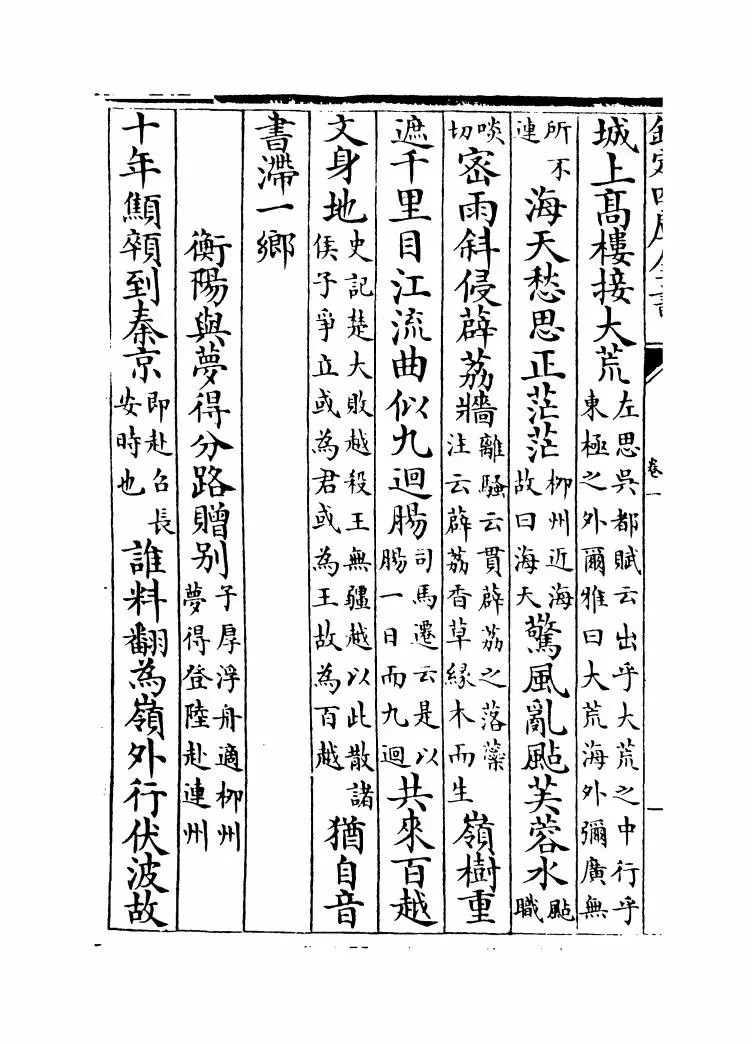 欽定四庫全書 卷一 一
城上高樓接大荒左思吳都賦云出乎大荒之中行乎東極之外爾雅曰大荒海外彌廣無
所不連海天愁思正茫茫柳州近海故曰海天驚風亂颭芙蓉水颭職
啖切密雨斜侵薜荔牆離騷云貫薜荔之落蘂注云薜荔香草緣木而生嶺樹重
遮千里目江流曲似九迴腸司馬遷云是以腸一日而九迴共來百越
文身地史記楚大敗越殺王無疆越以此散諸侯子爭立或為君或為王故為百越猶自音
書滯一鄉
衡陽與夢得分路贈别子厚浮舟適柳州夢得登陸赴連州
十年顦顇到秦京即赴召長安時也誰料翻為嶺外行伏波故